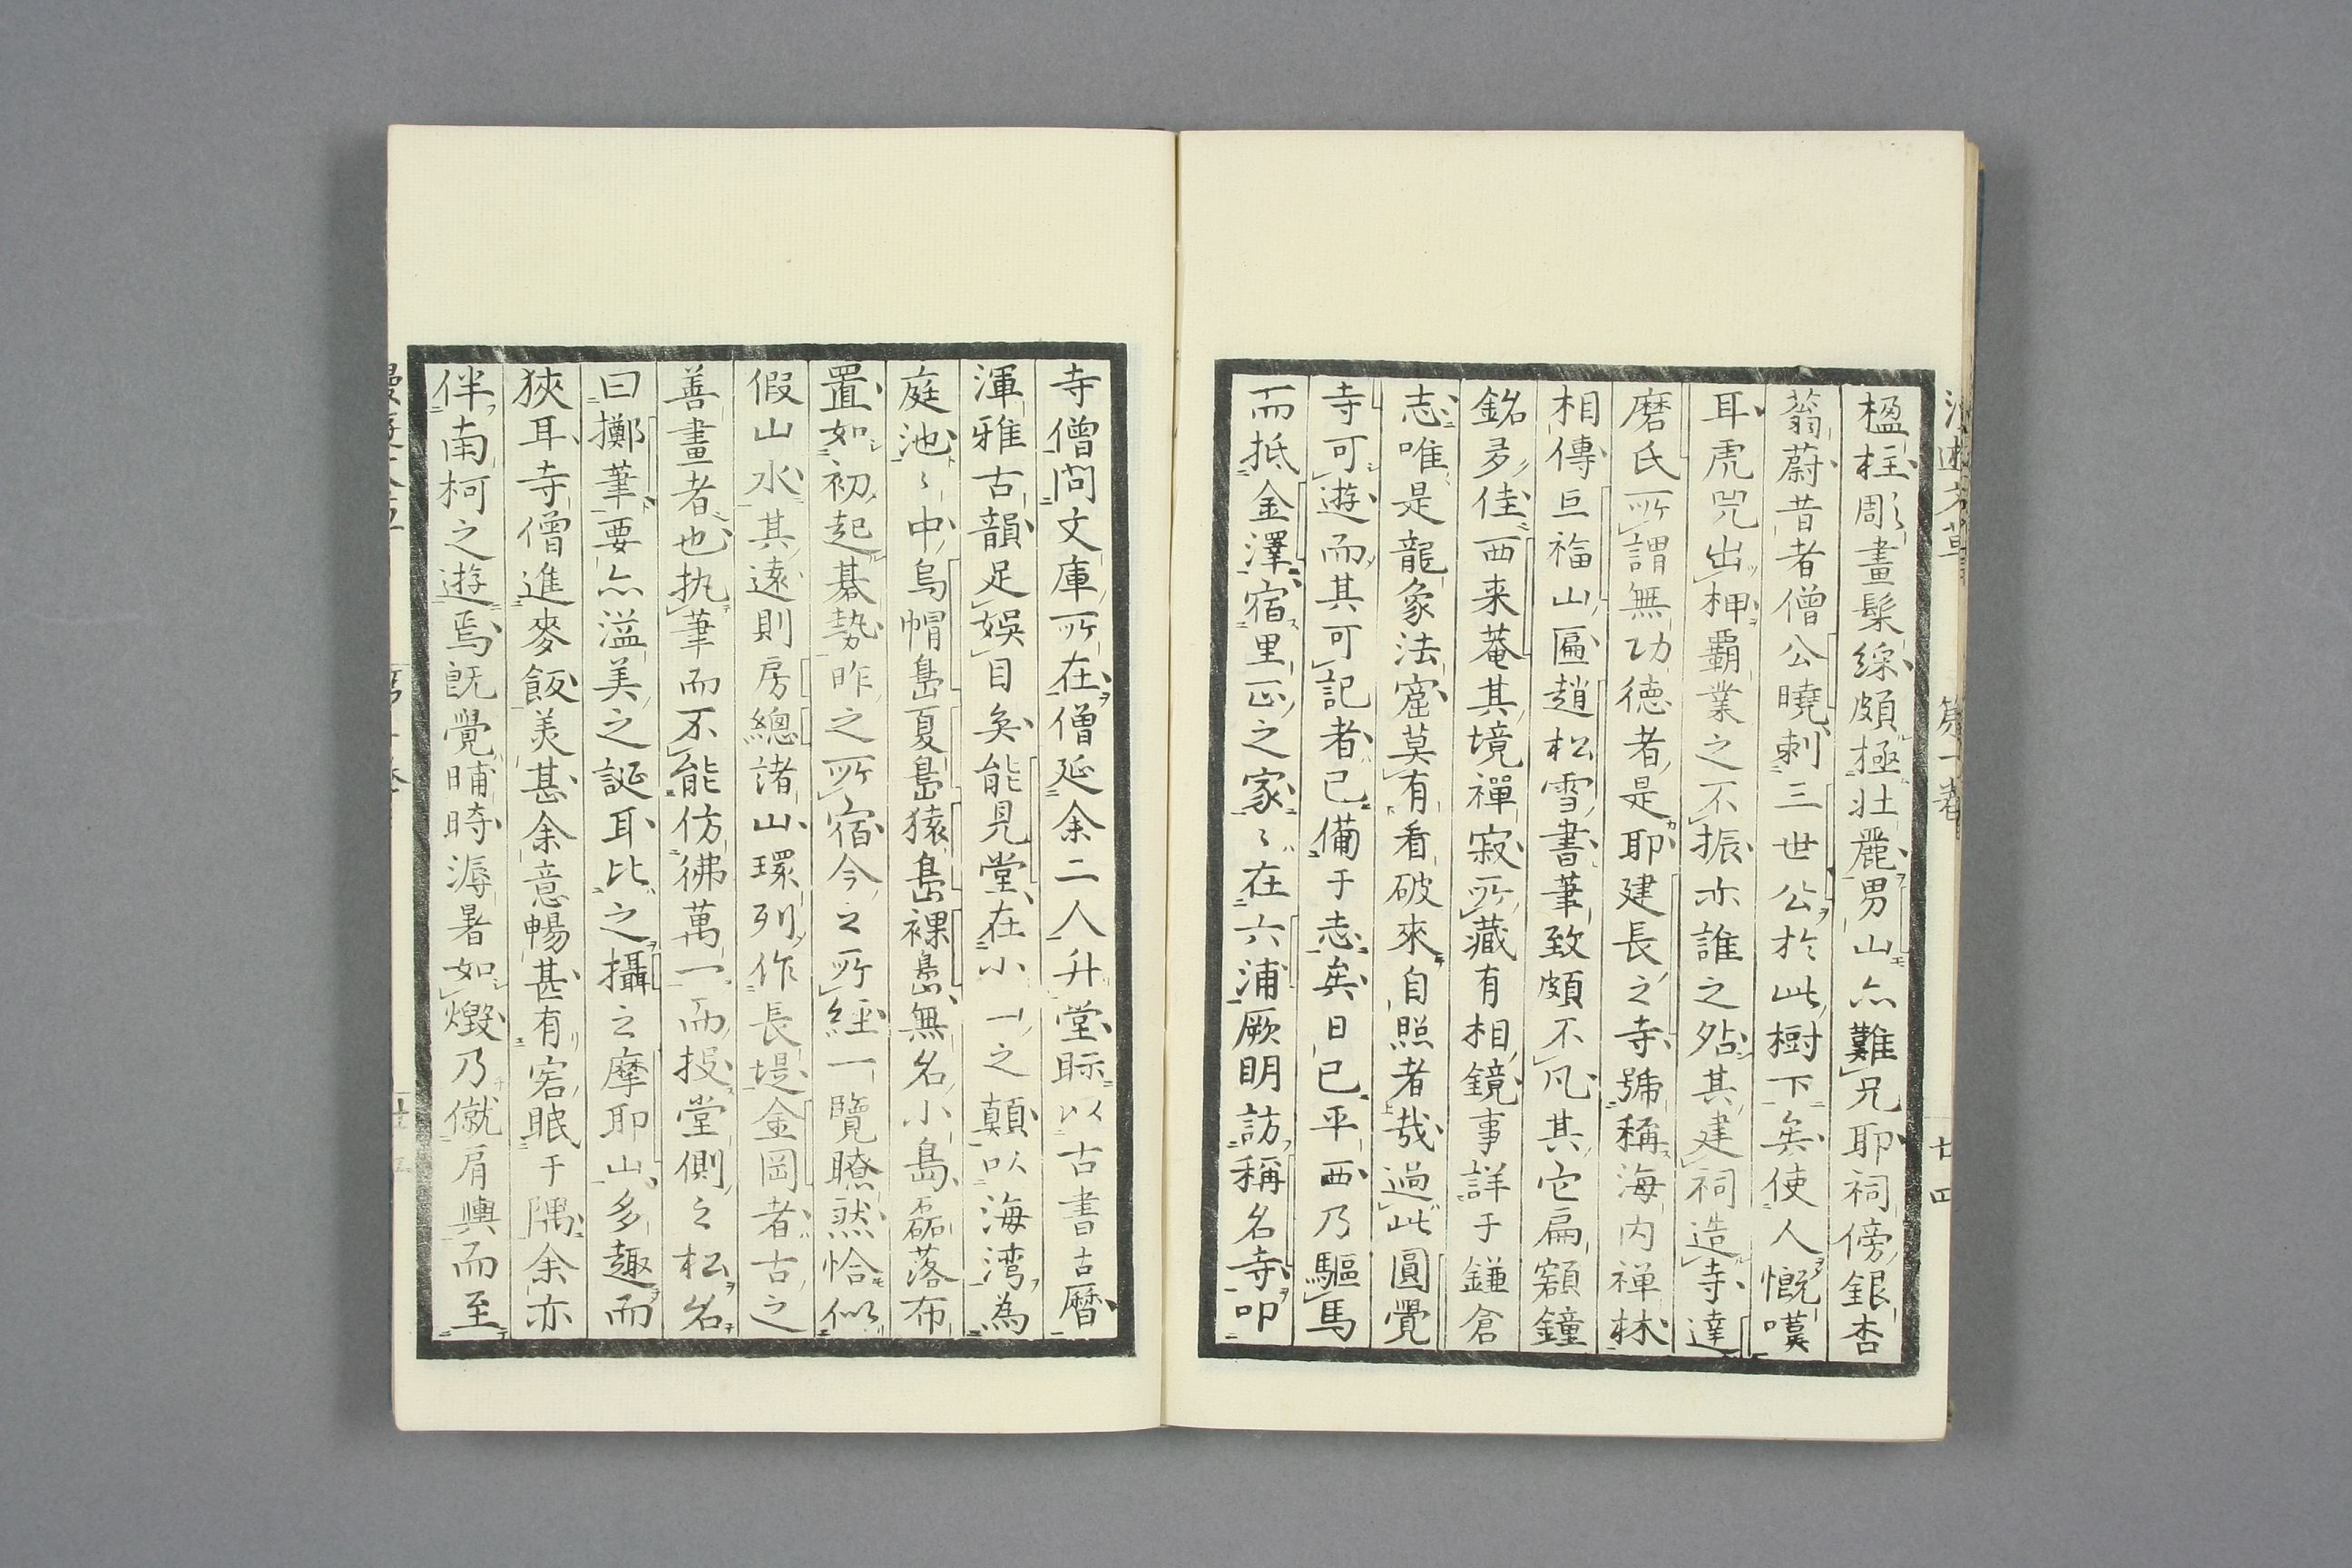 楹柱彫畫髹綵頗極壯麗男山亦難兄耶祠傍銀杏
蓊蔚昔者僧公曉刺三世公於此樹下矣使人慨嘆
耳虎兕出柙覇業之不振亦誰之㸃其建祠造寺達
磨氏所謂無功德者是耶建長之寺號稱海内禅林
相傳巨福山匾趙松雪書筆致頗不凡其它扁額鐘
銘多佳西来菴其境禪寂所藏有相鏡事詳于鎌倉
志唯是龍象法窟莫有看破來自照者哉過此圓覺
寺可遊而其可記者已備于志矣日已平西乃驅馬
而抵金澤宿里正之家〻在六浦厥明訪稱名寺叩
寺僧問文庫所在僧延余二人升堂眎以古書古曆
渾雅古韻足娯目矣能見堂在小一之顛以海湾為
庭池〻中烏帽島夏島猿島裸島無名小島磊落布
置如初起碁勢昨之所宿今之所經一覽瞭然恰似
假山水其遠則房總諸山環列作長堤金岡者古之
善畫者也執筆而不能仿彿萬一而投堂側之松名
曰擲筆要亦溢美之誕耳比之攝之摩耶山多趣而
狹耳寺僧進麥飯美甚余意暢甚有宕眠于隅余亦
伴南柯之遊焉既覺晡時溽暑如燬乃僦肩輿而至